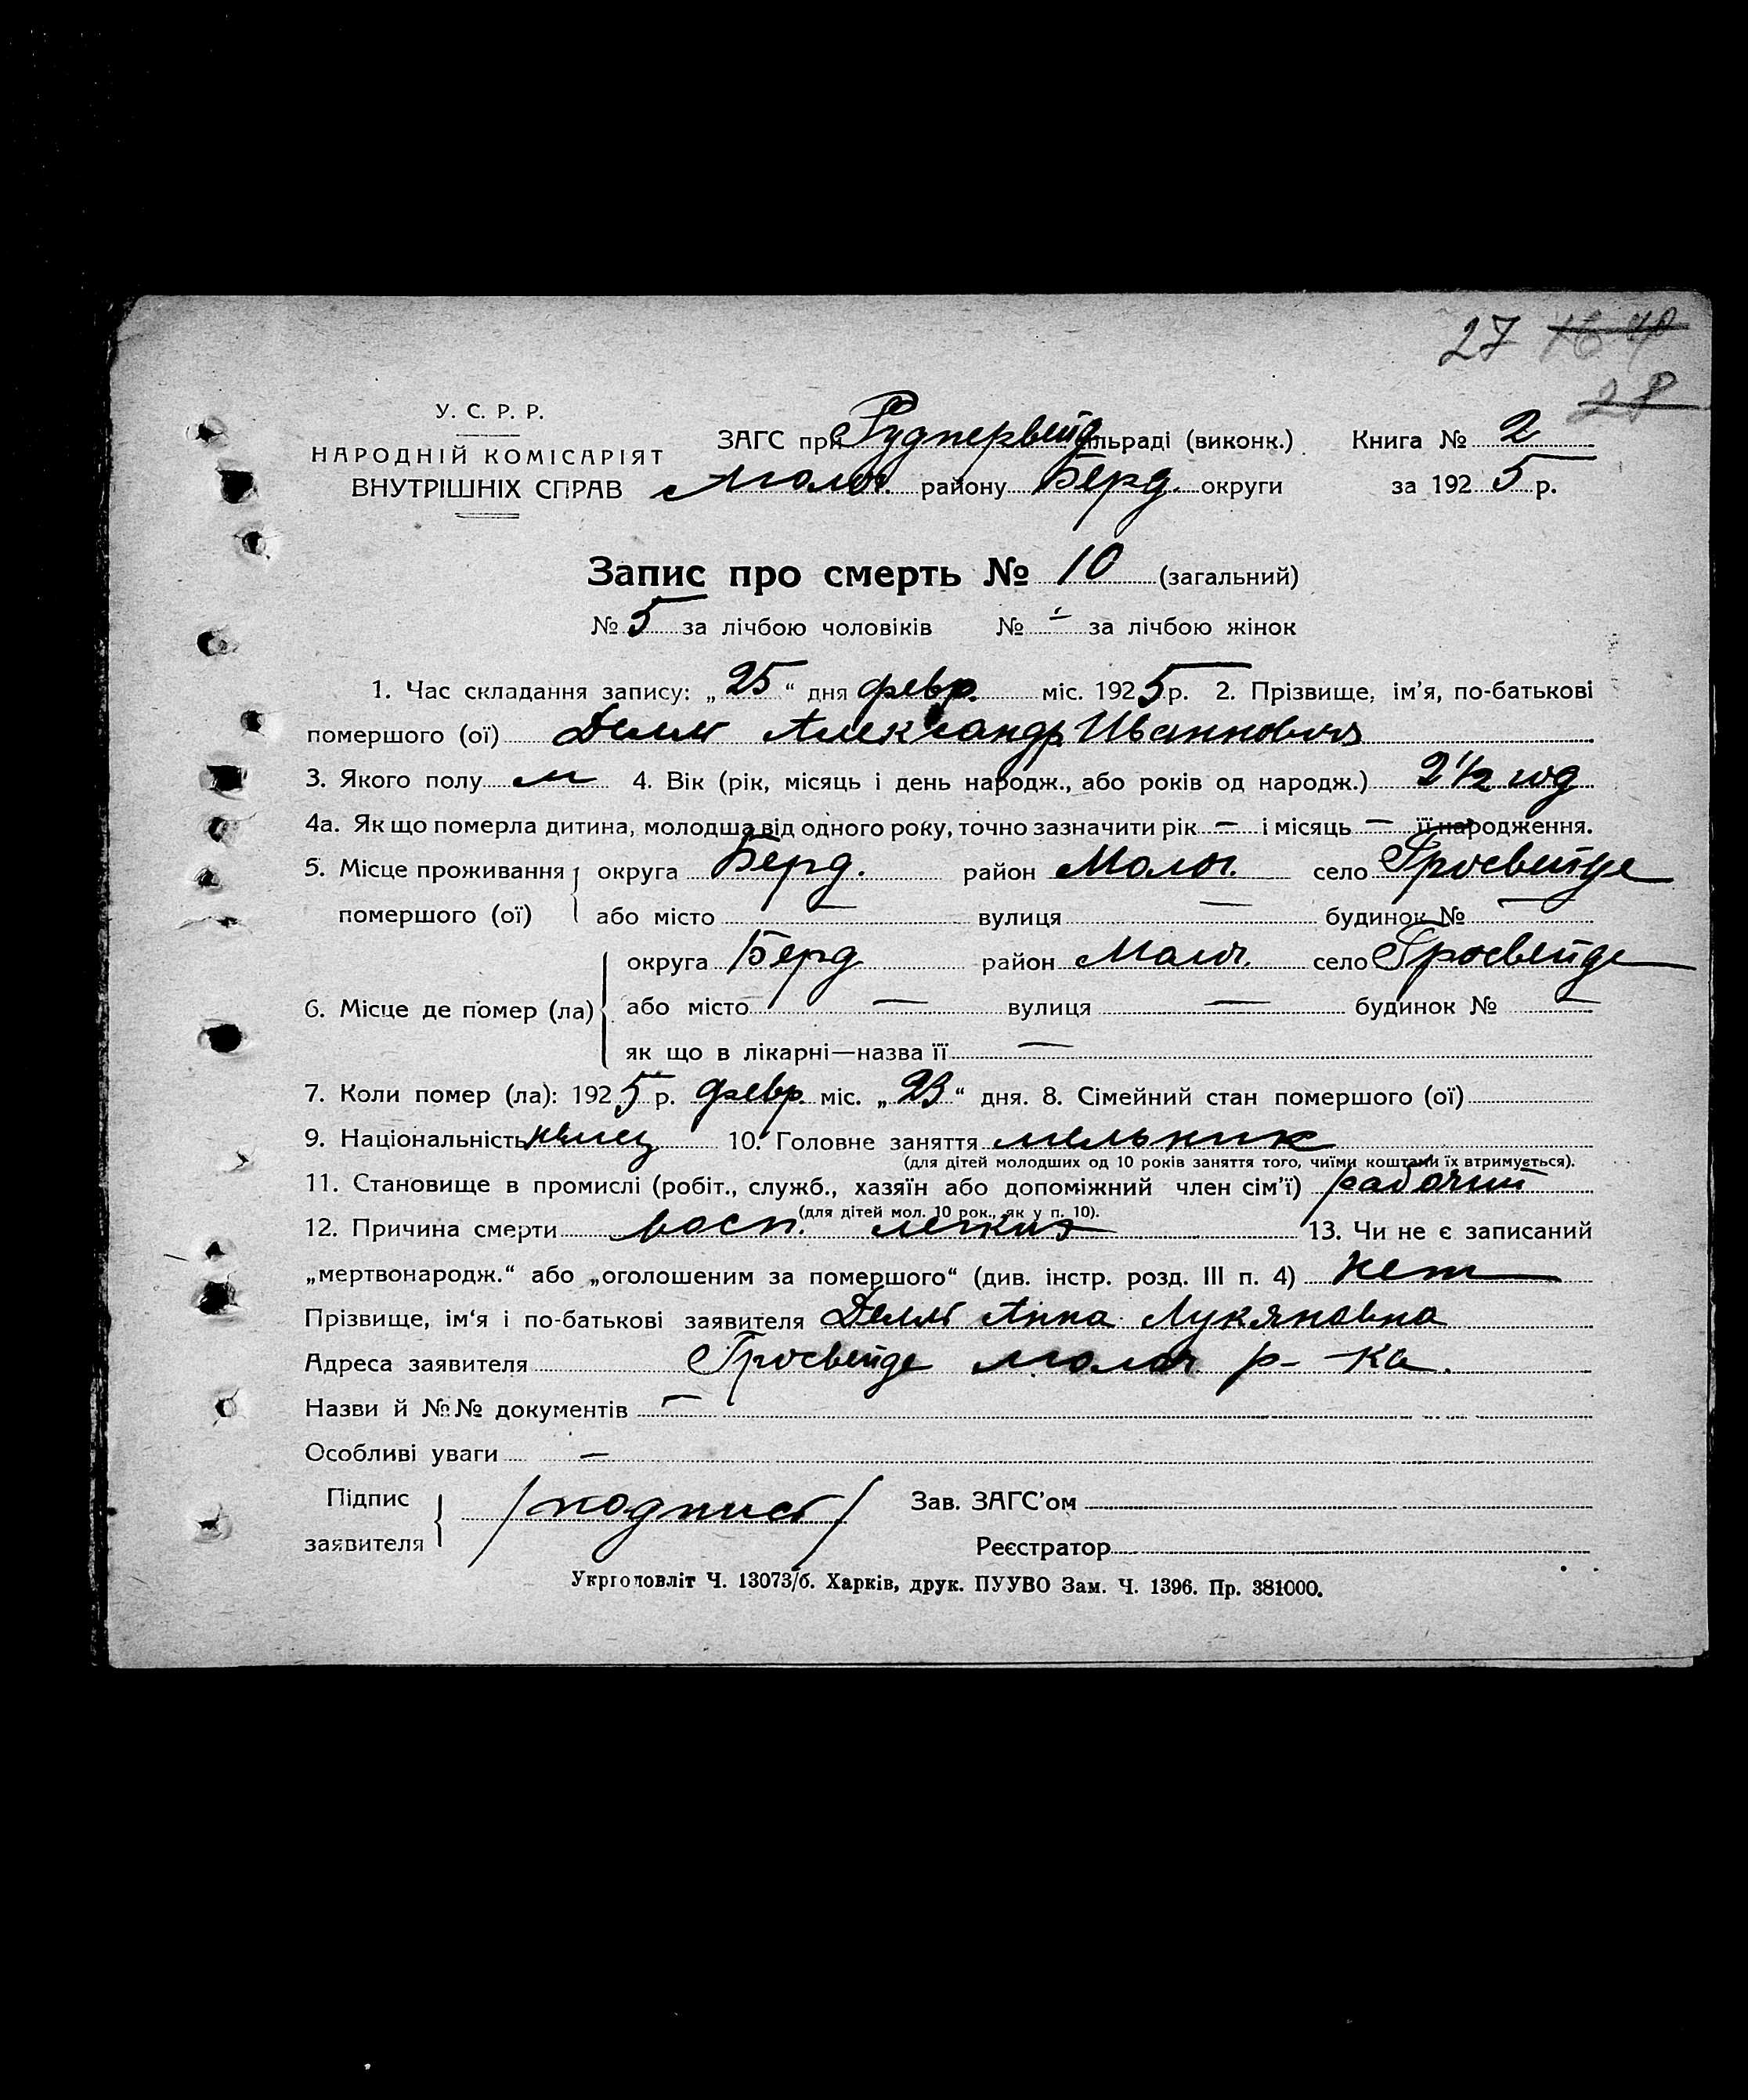 27 16 40
28
У. С. Р. Р.
НАРОДНІЙ КОМІСАРІЯТ
ВНУТРІШНІХ СПРАВ
ЗАГС при Руднервейд сільраді (виконк.) Книга № 2
Молоч. району Берд. округи за 1925 р.
Запис про смерть № 10 (загальний)
№ 5 за лічбою чоловіків № – за лічбою жінок
1. Час складання запису: „25“ дня февр. міс. 1925 р. 2. Прізвище, ім’я, по-батькові
помершого (ої) Делль Александр Иванновичъ
3. Якого полу м 4. Вік (рік, місяць і день народж., або років од народж.) 2 1/2 год
4а. Як що померла дитина, молодша від одного року, точно зазначити рік — і місяць — її народження.
5. Місце проживання округа Берд. район Молоч. село Гросвейде
помершого (ої) або місто вулиця — будинок № —
округа Берд район Молоч. село Гросвейде
6. Місце де помер (ла) або місто — вулиця — будинок № —
як що в лікарні—назва її —
7. Коли помер (ла): 1925 р. февр. міс. „23“ дня. 8. Сімейний стан помершого (ої)
9. Національність немец 10. Головне заняття мельник
(для дітей молодших од 10 років заняття того, чиїми коштами їх втримується).
11. Становище в промислі (робіт., служб., хазяїн або допоміжний член сім’ї) рабочий
(для дітей мол. 10 рок., як у п. 10).
12. Причина смерти восп. легких 13. Чи не є записаний
„мертвонародж.“ або „оголошеним за помершого“ (див. інстр. розд. III п. 4) нет
Прізвище, ім‘я і по-батькові заявителя Делль Анна Лукяновна
Адреса заявителя Гросвейде молоч р-ка.
Назви й №№ документів —
Особливі уваги —
Підпис
заявителя /подпись/
Зав. ЗАГС’ом
Реєстратор
Укрголовліт Ч. 13073/б. Харків, друк. ПУУВО Зам. Ч. 1396. Пр. 381000.